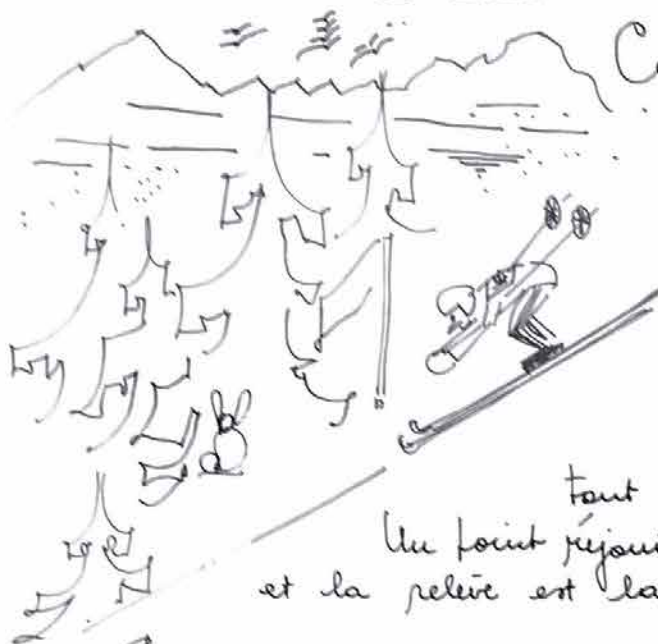 tout
Un point réjoui
et la relève est la